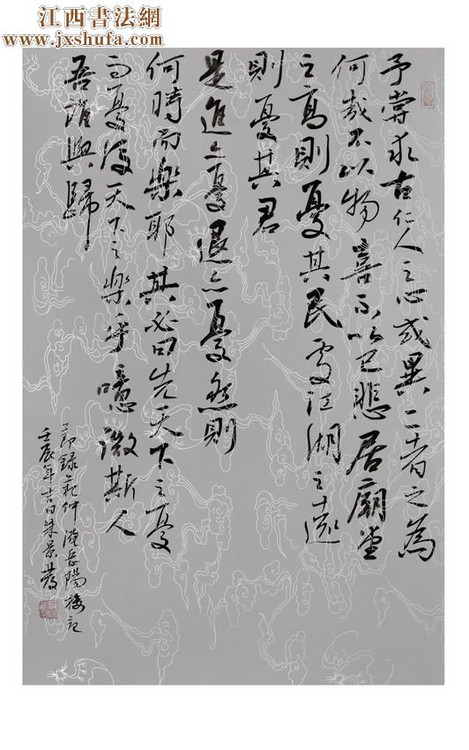 江西書法網
www.jxshufa.com
予嘗求古仁人之心或異二者之為
何哉不以物喜不以己悲居廟堂
之高則憂其民處江湖之遠
則憂其君
是進亦憂退亦憂然則
何時而樂耶其必曰先天下之憂
而憂後天下之樂乎噫微斯人
吾誰與歸
節錄范仲淹岳陽樓記
壬辰年吉日朱景